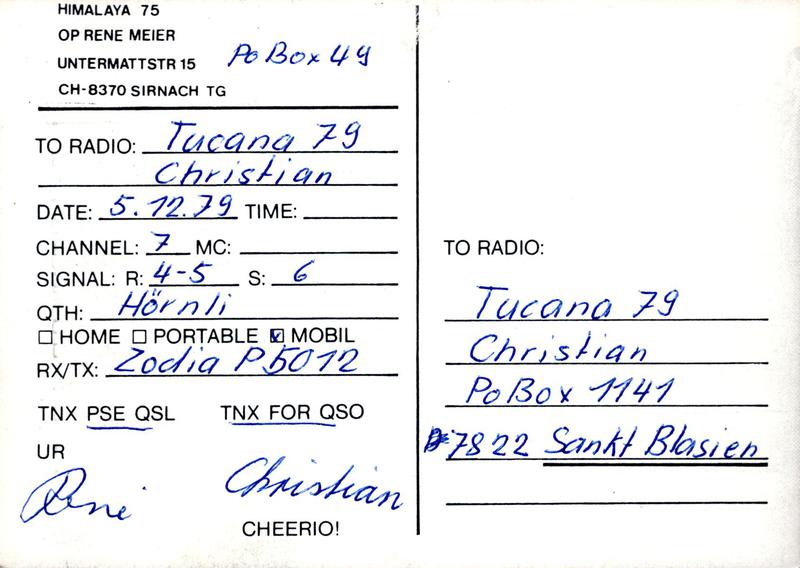 HIMALAYA 75
OP RENE MEIER
UNTERMATTSTR 15 PoBox 49
CH-8370 SIRNACH TG
TO RADIO: Tucana 79
Christian
DATE: 5.12.79 TIME:
CHANNEL: 7 MC:
SIGNAL: R: 4-5 S: 6
QTH: Hörnli
HOME PORTABLE MOBIL
RX/TX: Zodia P5012
TNX PSE QSL TNX FOR QSO
UR
René Christian
CHEERIO!
TO RADIO:
Tucana 79
Christian
PoBox 1141
D-7822 Sankt Blasien